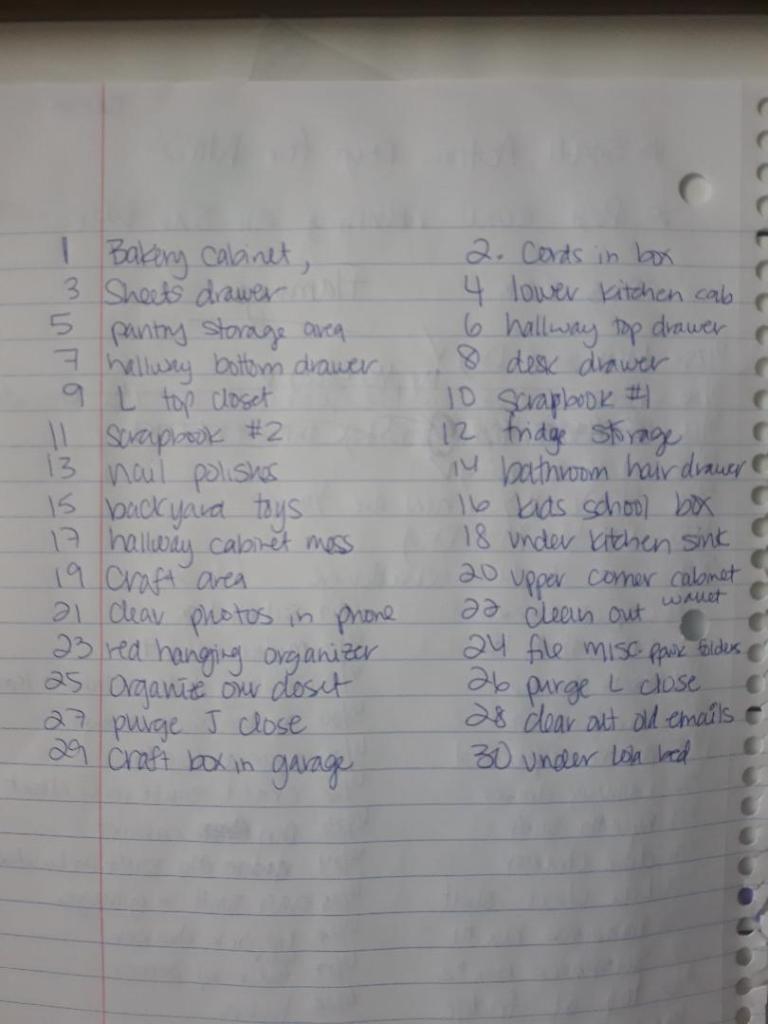 1 Bakery cabinet, 2. Cords in box
3 Sheets drawer 4 lower kitchen cab
5 pantry storage area 6 hallway top drawer
7 hallway bottom drawer 8 desk drawer
9 L top closet 10 Scrapbook #1
11 Scrapbook #2 12 fridge storage
13 nail polishes 14 bathroom hair drawer
15 backyard toys 16 kids school box
17 hallway cabinet mess 18 under kitchen sink
19 Craft area 20 upper corner cabinet
21 clear photos in phone 22 clean out wallet
23 red hanging organizer 24 file misc folders
25 Organize our closet 26 purge L close
27 purge J close 28 clear out old emails
29 Craft box in garage 30 under lola bed